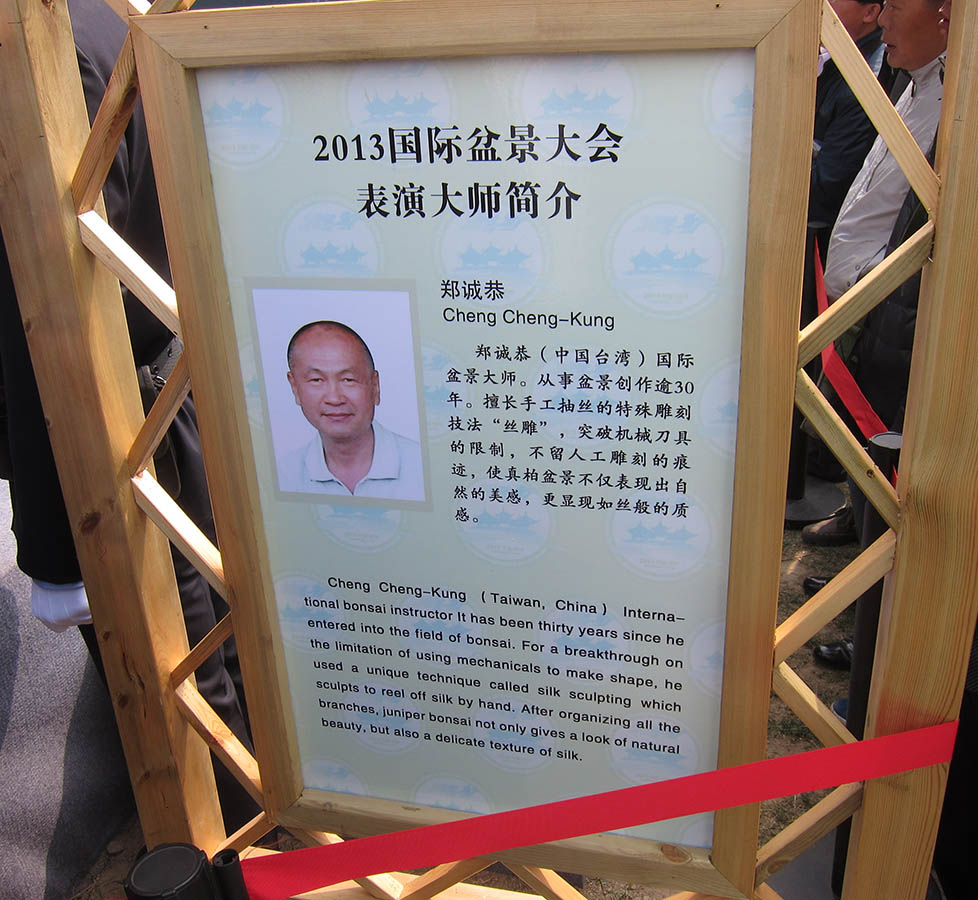 2013国际盆景大会
表演大师简介
郑诚恭
Cheng Cheng-Kung
郑诚恭（中国台湾）国际
盆景大师。从事盆景创作逾30
年。擅长手工抽丝的特殊雕刻
技法“丝雕”，突破机械刀具
的限制，不留人工雕刻的痕
迹，使真柏盆景不仅表现出自
然的美感，更显现如丝般的质
感。
Cheng Cheng-Kung (Taiwan, China) Interna-
tional bonsai instructor It has been thirty years since he
entered into the field of bonsai. For a breakthrough on
the limitation of using mechanicals to make shape, he
used a unique technique called silk sculpting which
sculpts to reel off silk by hand. After organizing all the
branches, juniper bonsai not only gives a look of natural
beauty, but also a delicate texture of silk.